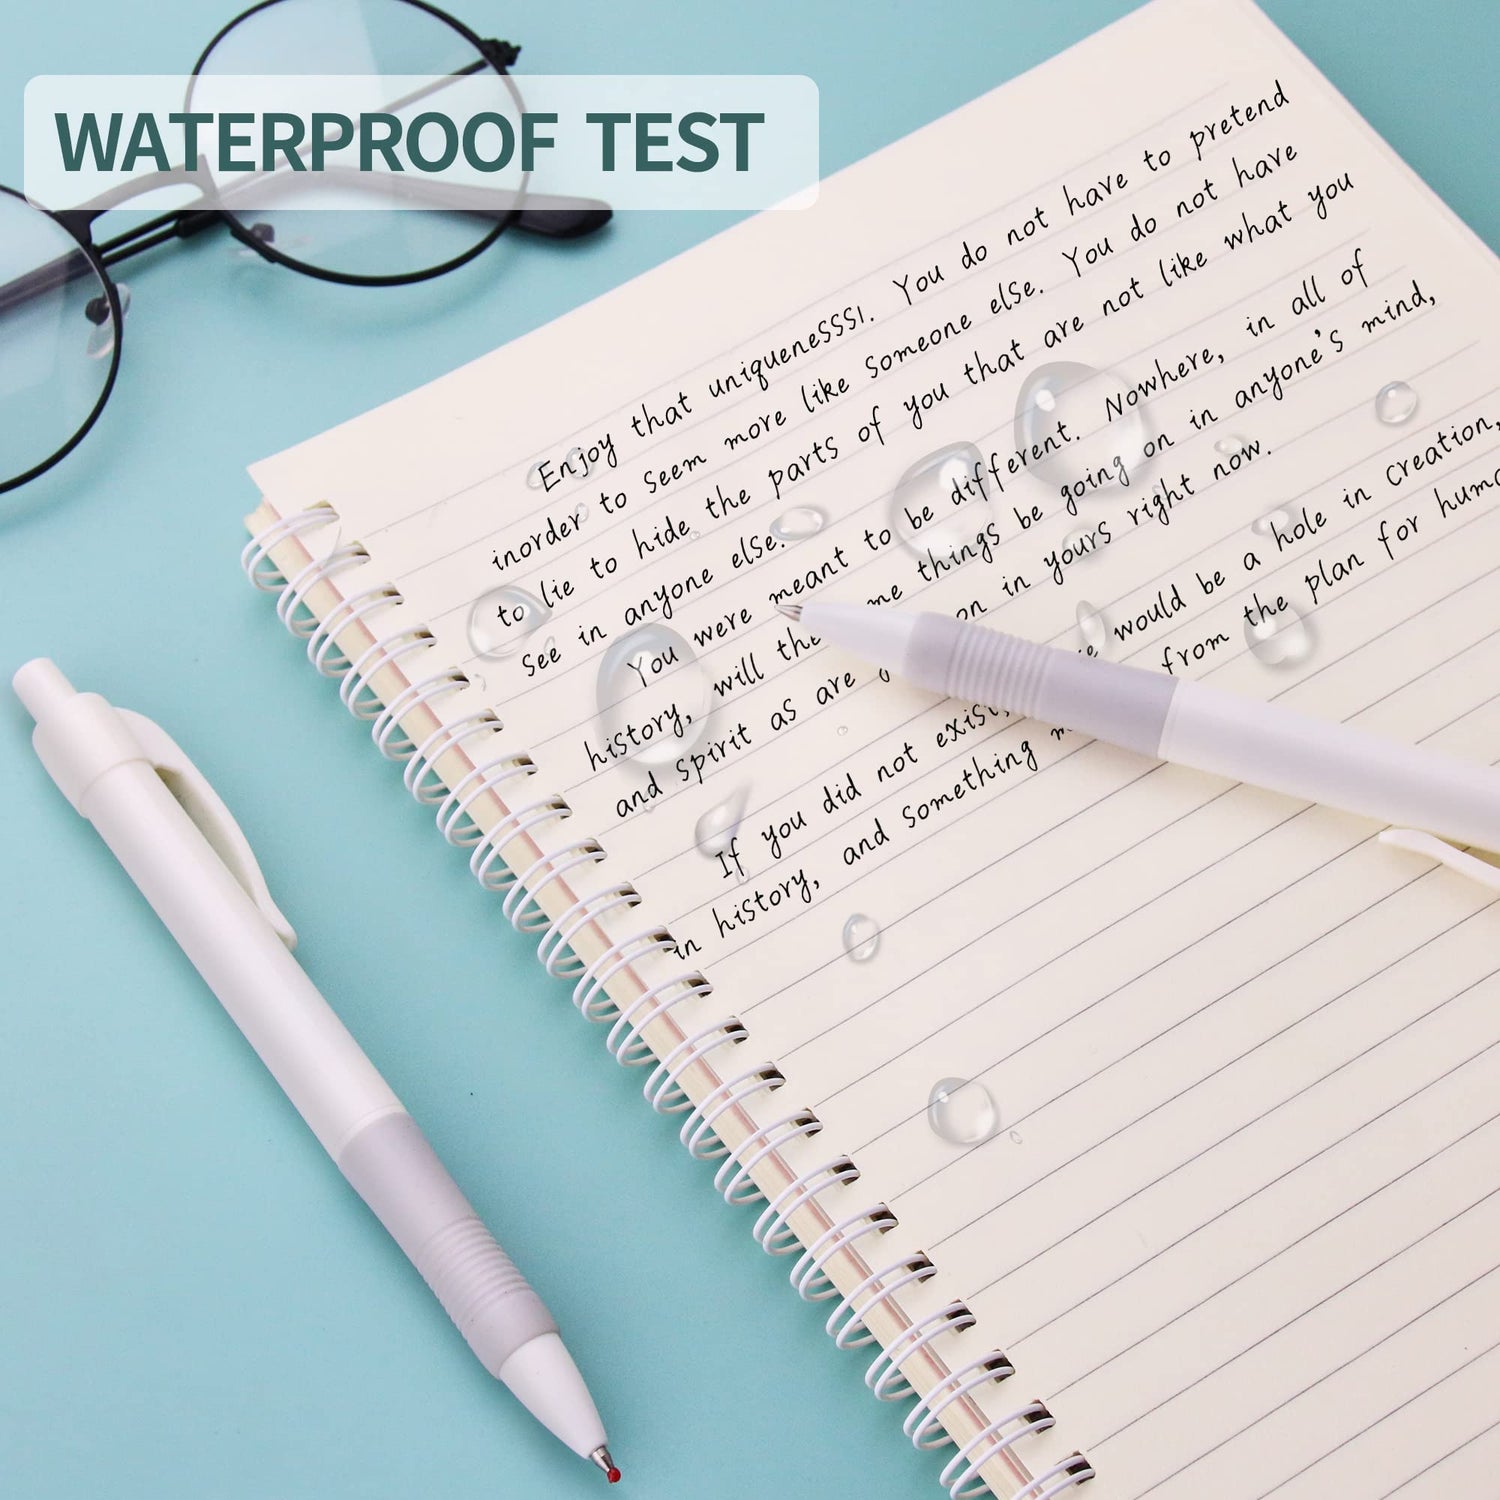 WATERPROOF TEST
Enjoy that uniquenesssı. You do not have to pretend
inorder to seem more like someone else. You do not have
to lie to hide the parts of you that are not like what you
see in anyone else.
You were meant to be different. Nowhere, in all of
history, will the me things be going on in anyone's mind,
and spirit as are on in yours right now.
If you did not exist, would be a hole in creation,
in history, and something from the plan for